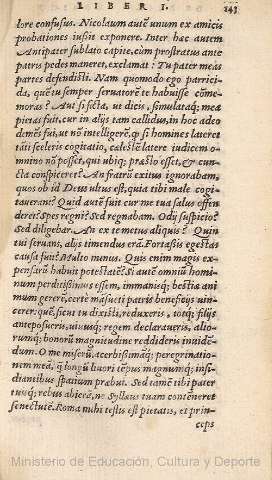 LIBER I. 143
lore confusus. Nicolaum autē unum ex amicis
probationes iussit exponere. Inter hæc autem
Antipater sublato capite, cùm prostratus ante
patris pedes maneret, exclamat: Tu pater meas
partes defendisti. Nam quomodo ego parrici-
da, quē tu semper seruatorē te habuisse cōme-
moras? Aut si ficta, ut dicis, simulataq; mea
pietas fuit, cur in alijs tam callidus, in hoc adeo
demēs fui, ut nō intelligerē, q̄ si homines lateret
tāti sceleris cogitatio, cælestē latere iudicem o-
mnino nō posset, qui ubiq; præsto esset, & cun-
cta conspiceret? An fratrū exitus ignorabam,
quos ob id Deus ultus est, quia tibi male cogi-
tauerant? Quid autē fuit cur me tua salus offen
deret? Spes regni? Sed regnabam. Odij suspicio?
Sed diligebar. An ex te metus aliquis? Quin
tui seruans, alijs timendus erā. Fortassis egestas
causa fuit? Multo minus. Quis enim magis ex-
pensarū habuit potestatē? Si autē omniū homi
num perditissimus essem, immaniq; bestiæ ani
mum gererē, certè māsueti patris beneficijs uin-
cerer: quē, sicut tu dixisti, reduxeris, totq; filijs
anteposueris, uiuusq; regem declaraueris, alio-
rumq; bonorū magnitudine reddideris inuidē-
dum. O me miserū, acerbissimāq; peregrinatio-
nem meā, q̄ longū liuori tēpus magnumq; insi-
diantibus spatium præbui. Sed tamē tibi pater
tuisq; rebus abierā, ne Syllæus tuam contēneret
senectutē. Roma mihi testis est pietatis, et prin-
ceps
Ministerio de Educación, Cultura y Deporte